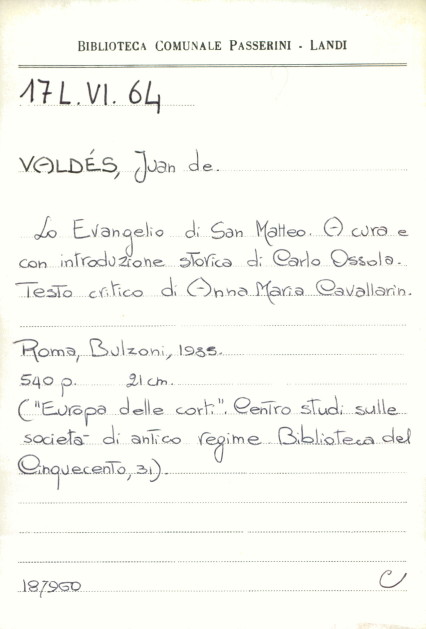 BIBLIOTECA COMUNALE PASSERINI - LANDI
17 L. VI. 64
VALDÉS, Juan de.
Lo Evangelio di San Matteo. A cura e
con introduzione storica di Carlo Ossola.
Testo critico di Anna Maria Cavallarin.
Roma, Bulzoni, 1985.
540 p. 21 cm.
("Europa delle corti". Centro studi sulle
società di antico regime. Biblioteca del
Cinquecento, 31).
187960 C